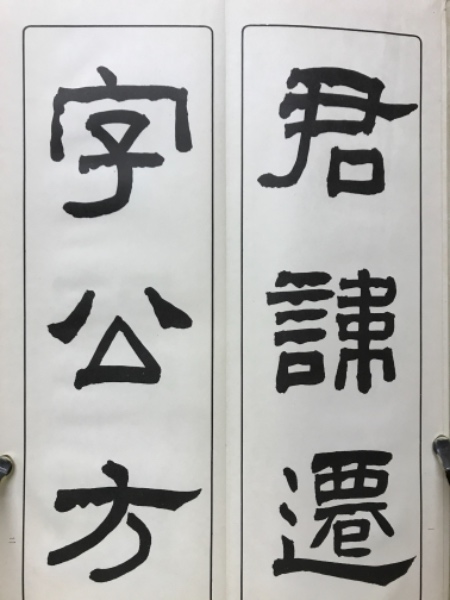 君諱遷
字公方